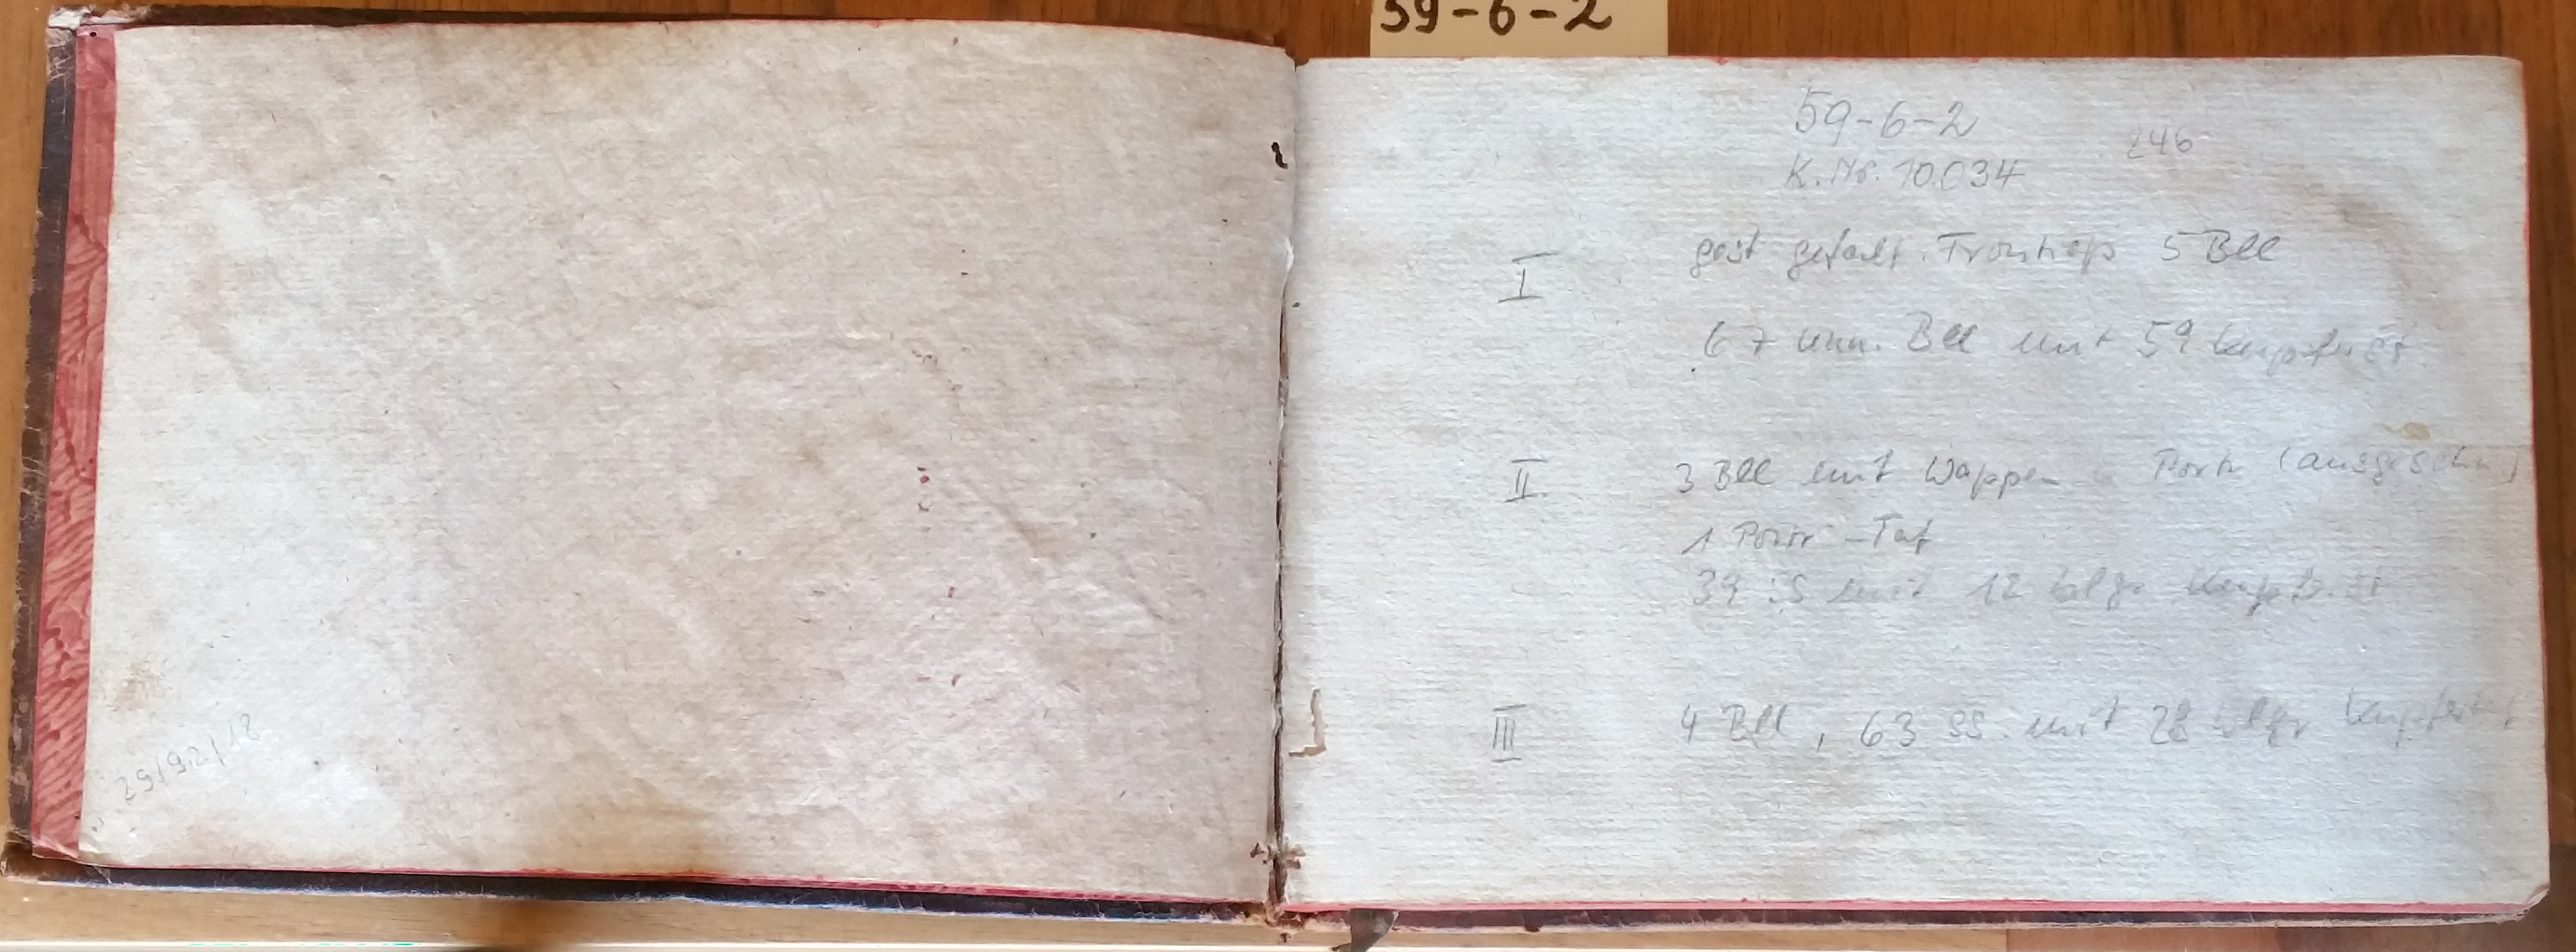 59-6-2
59-6-2
246
K. Nr. 10.034
I
gest gefalt. Frontisp 5 Bll
67 unn. Bll mit 59 Kupferst
II
3 Bll mit Wappen Portr (ausgeschn.)
1 Portr-Taf
39 SS mit 12 blgr. Kupfr. st
III
4 Bll, 63 SS. mit 28 blgr Kupfertaf